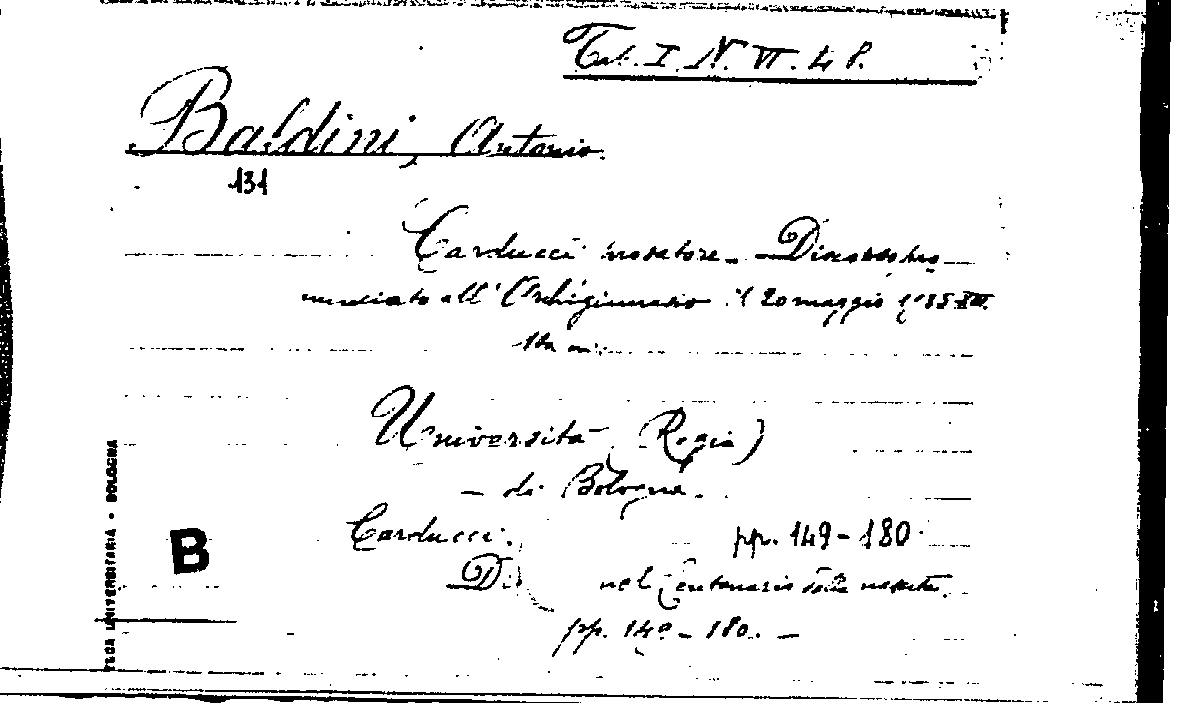 Tab. I. N. VI. 48.
Baldini, Antonio.
131
Carducci prosatore - Discorso
all'Archiginnasio il 20 maggio 1935-XIII.
Università (Regia)
- di Bologna.
Carducci. pp. 149-180.
Di nel Centenario della nascita.
pp. 149-180. -
B
TECA UNIVERSITARIA • BOLOGNA